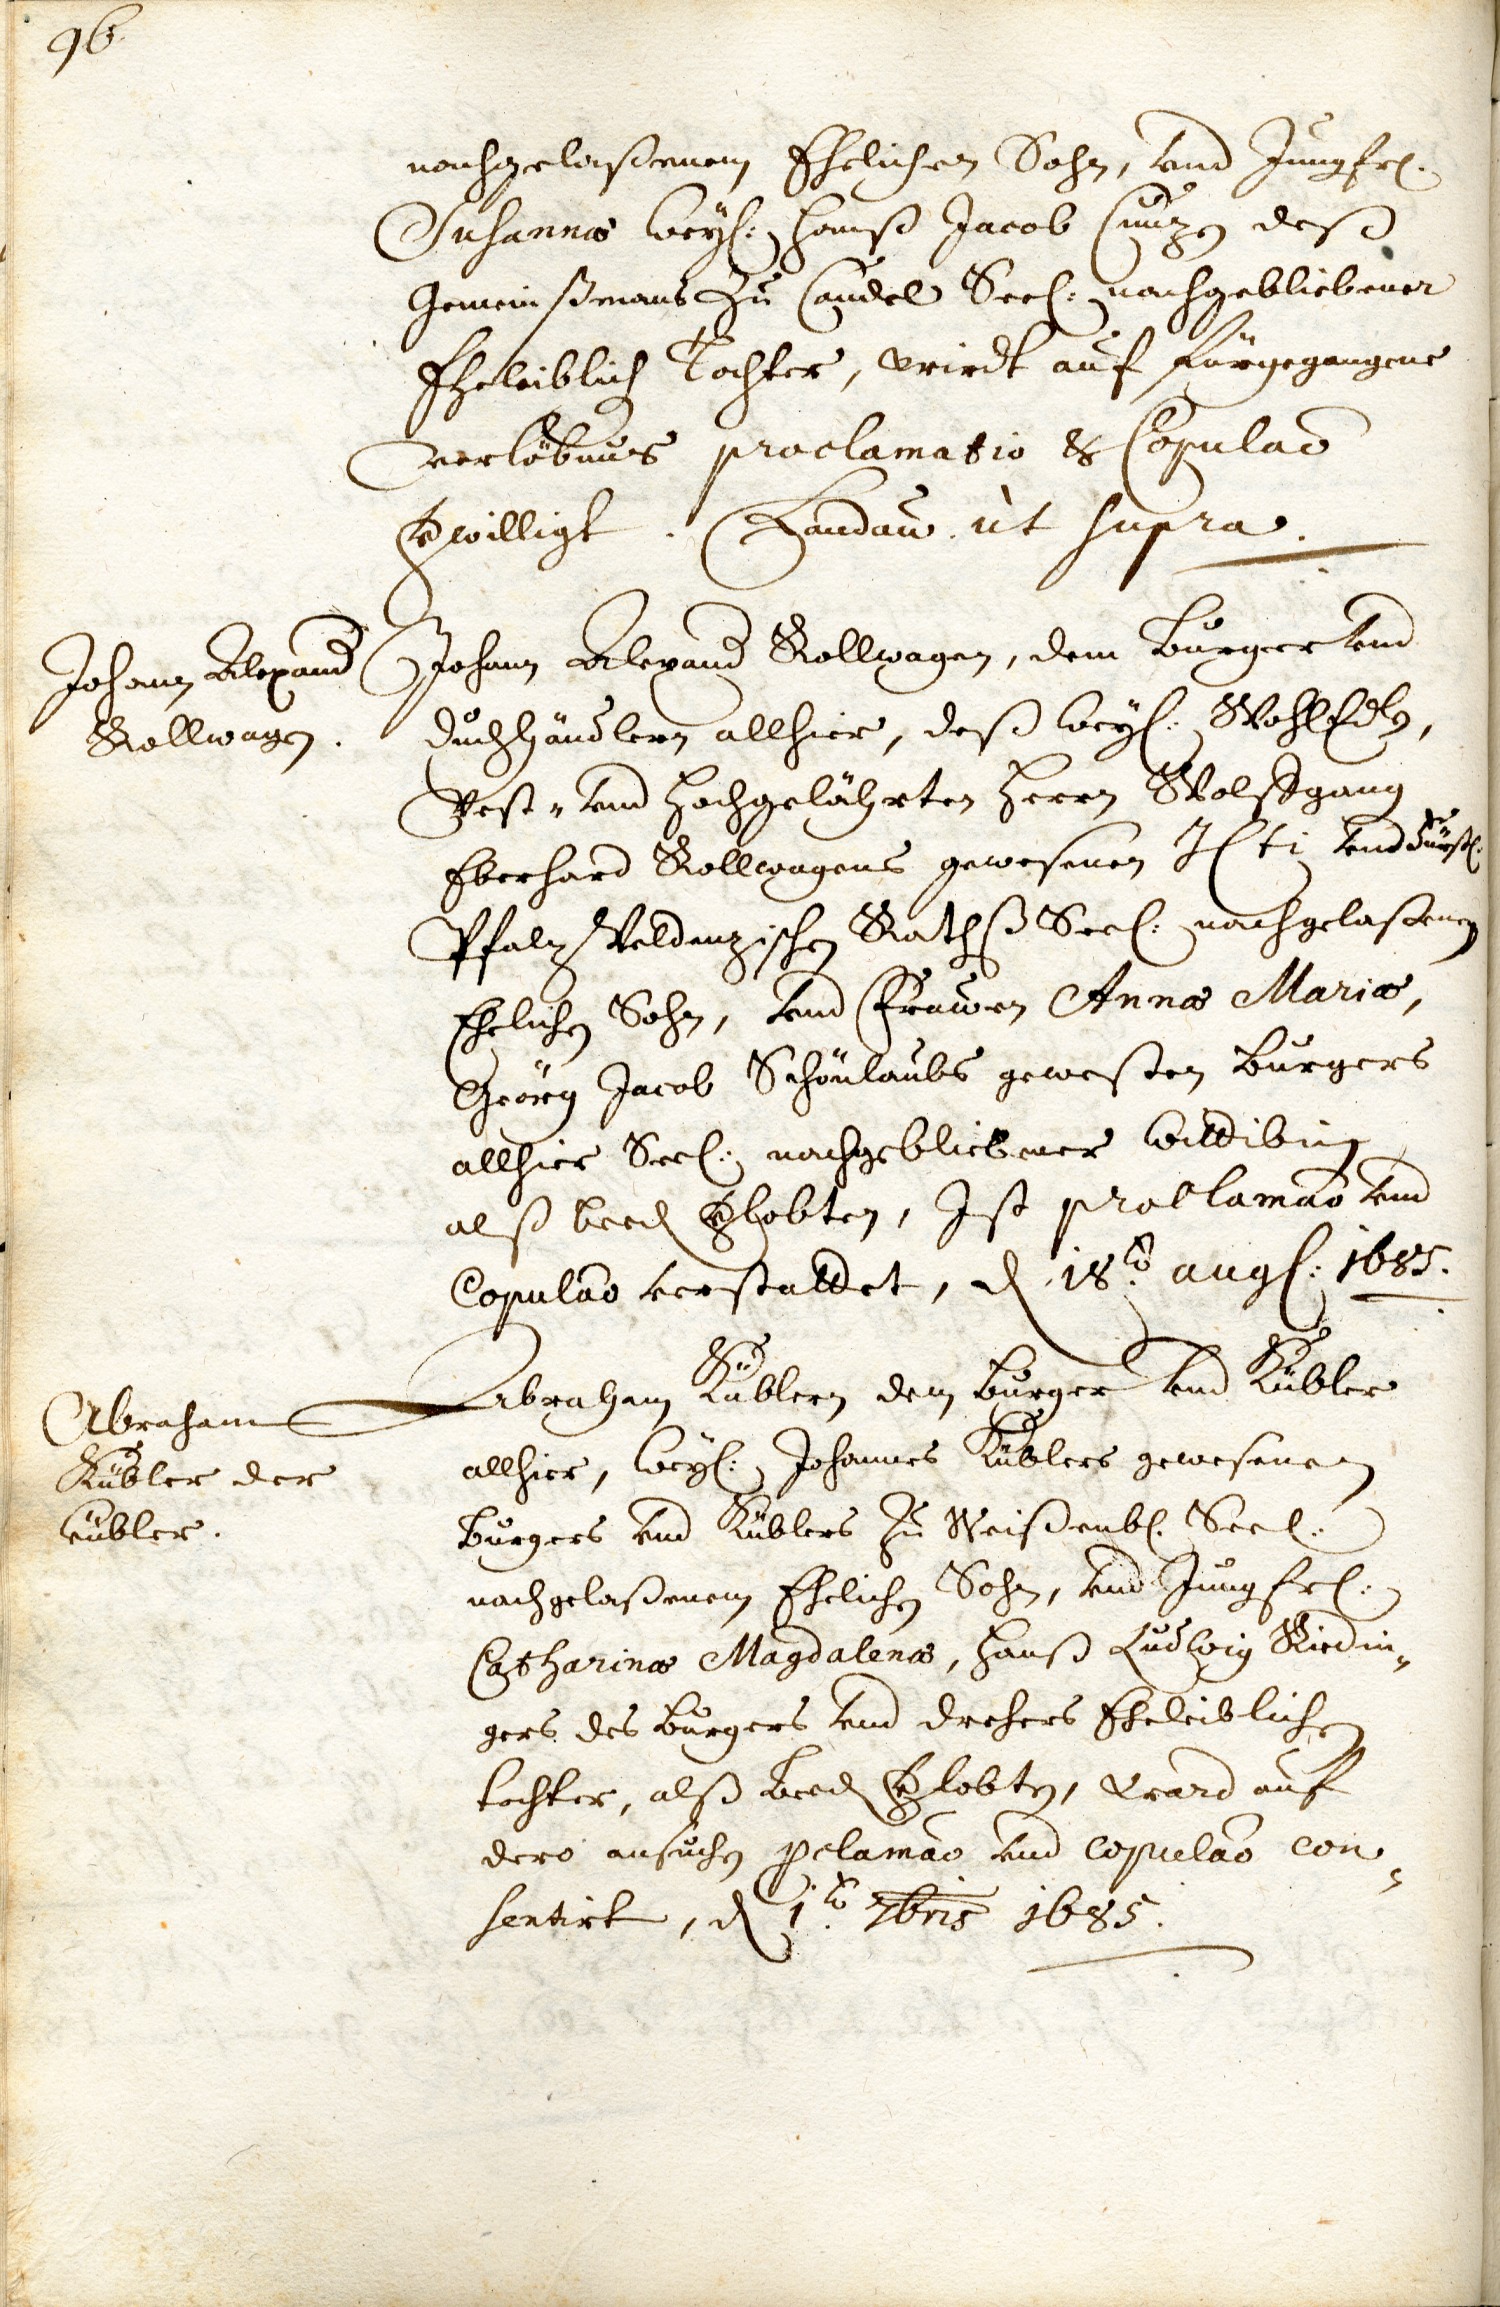 96.
nachgelaßenem Ehelichen Sohn, und Jungfrl.
Susannæ weyl: Hanß Jacob Cuntzen deß
Gemeinßmans zu Candel Seel: nachgebliebener
Eheleiblich Tochter, wirdt auf fürgegangene
verlöbnus proclamatio & Copulao
verwilligt. Landau ut supra.
Johann Alexand
Rollwagen.
Johann Alexand Rollwagen, dem Burger und
duchhändlern allhier, deß weyl: WohlEdlen,
Vest- und Hochgelährten Herrn Wolfgang
Eberhard Rollwagens gewesenen JCti und fürstl.
Pfaltz Veldenzischen Rathß Seel: nachgelaßenen
Ehelichen Sohn, und Frawen Annæ Mariæ,
Geörg Jacob Schönlaubs geweßten Burgers
allhier Seel: nachgebliebener Wittibin
alß beed verlobten, Ist proclamao und
Copulao verstattet, d 18t. aug: 1685.
Abraham
Kübler der
kübler.
Abraham Küblern dem Burger und Kübler
allhier, weyl: Johannes Küblers gewesenem
Burgers und Küblers zu Weißenb. Seel:
nachgelaßenem Ehelichen Sohn, und Jungfrl:
Catharinæ Magdalenæ, Hanß Ludwig Riedin-
gers des Burgers und drehers Eheleiblichen
tochter, alß beed verlobten, ward auf
dero ansuchen pclamao und copulao con-
sentirt, d 1t. 7bris 1685.